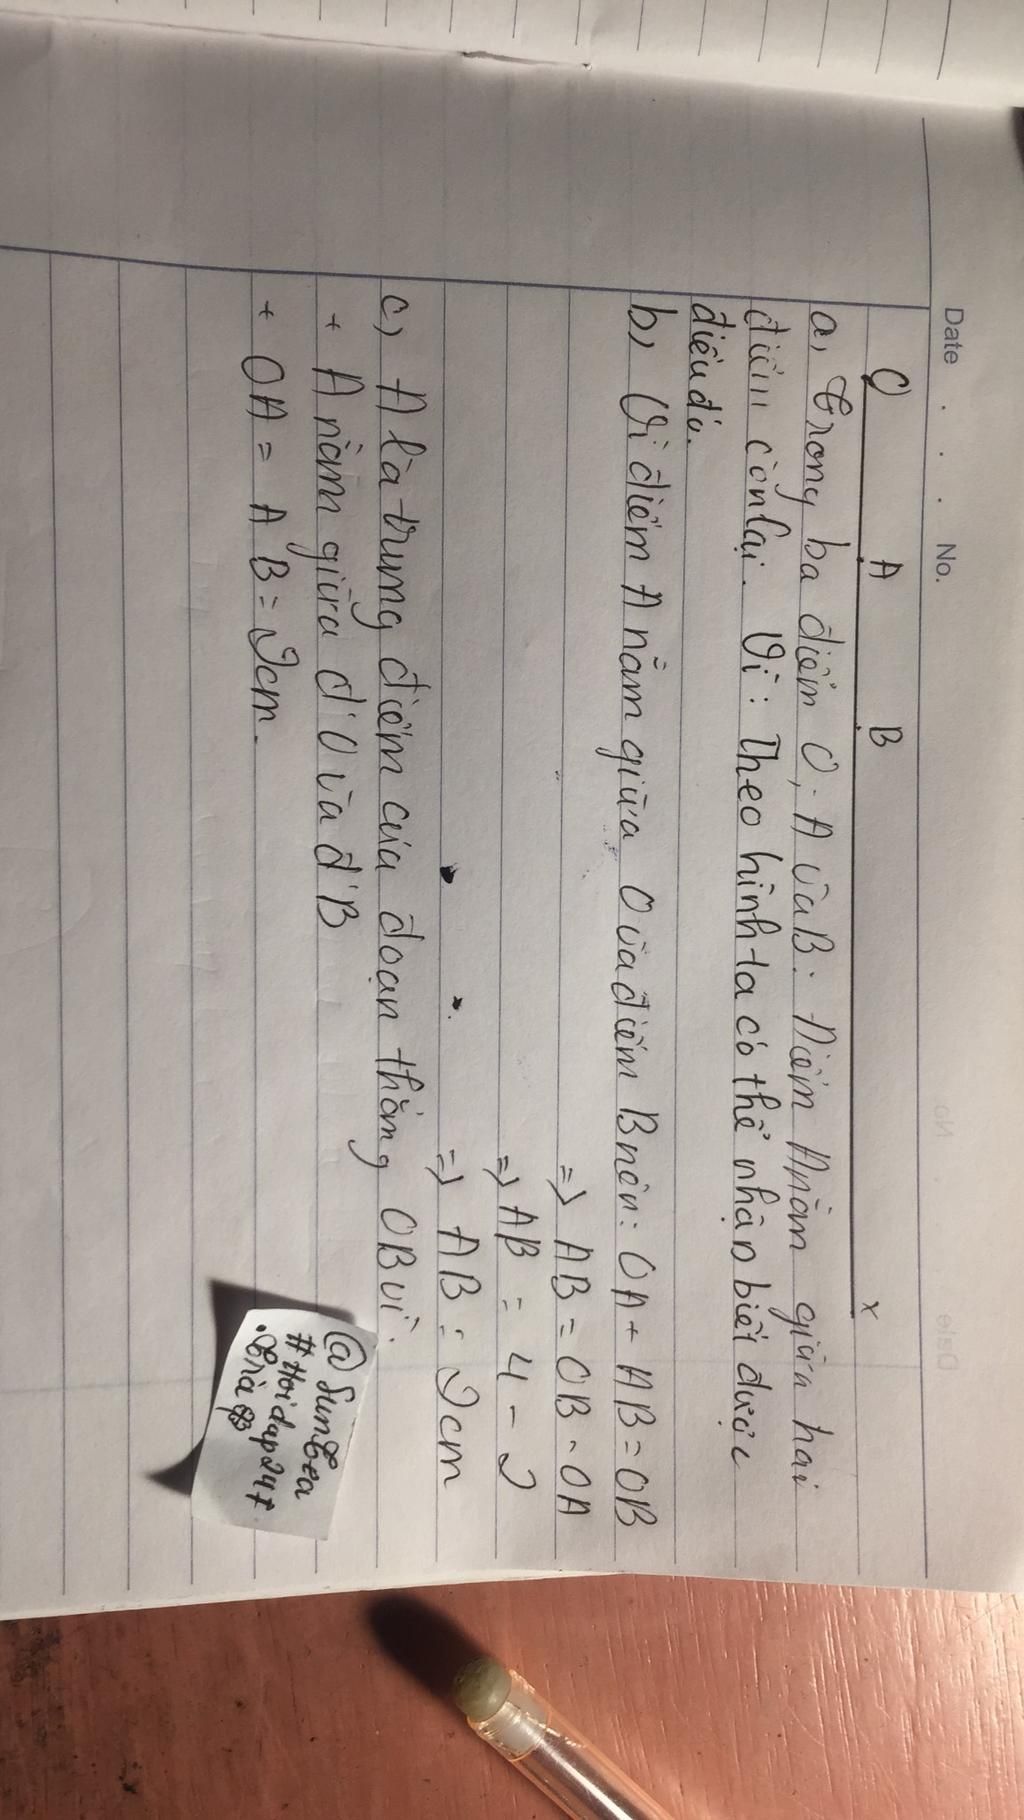 Date . . . No.
O A B x
a, Trong ba điểm O, A và B. Điểm A nằm giữa hai
điểm còn lại. Vì: Theo hình ta có thể nhận biết được
điều đó.
b, Vì điểm A nằm giữa O và điểm B nên: OA + AB = OB
=> AB = OB - OA
=> AB = 4 - 2
=> AB = 2cm
c, A là trung điểm của đoạn thẳng OB vì:
+ A nằm giữa đ' O và đ' B
+ OA = AB = 2cm.
@ SunTea
# Hoidap247
. Trà